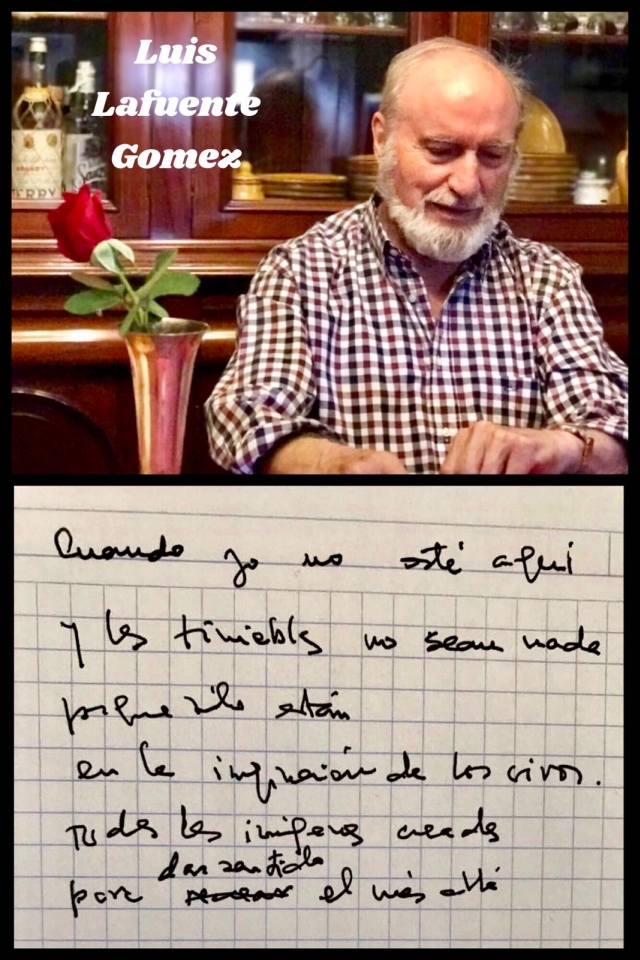 Luis
Lafuente
Gomez
TERRY
Cuando yo no esté aquí
y las tinieblas no sean nada
porque sólo están
en la imaginación de los vivos.
Todas las imágenes creadas
dar sentido
para el más allá